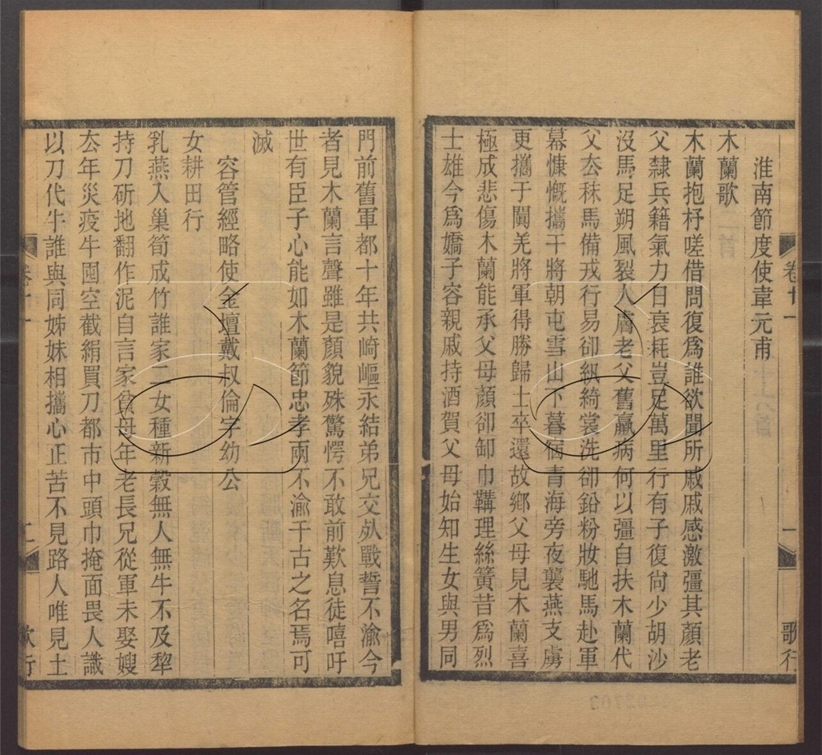 卷十一
一
歌行
淮南節度使韋元甫
木蘭歌
木蘭抱杼嗟借問復爲誰欲聞所戚戚感激彊其顏老
父隸兵籍氣力日衰耗豈足萬里行有子復尙少胡沙
沒馬足朔風裂人膚老父舊羸病何以彊自扶木蘭代
父厺秣馬備戎行易卻紈綺裳洗卻鉛粉妝馳馬赴軍
幕慷慨攜干將朝屯雪山下暮宿青海旁夜襲燕支虜
更攜于闐羌將軍得勝歸士卒還故鄉父母見木蘭喜
極成悲傷木蘭能承父母顏卻卸巾鞲理絲簧昔爲烈
士雄今爲嬌子容親戚持酒賀父母始知生女與男同
門前舊軍都十年共崎嶇永結弟兄交㱙戰誓不渝今
者見木蘭言聲雖是顏貌殊驚愕不敢前歎息徒嘻吁
世有臣子心能如木蘭節忠孝兩不渝千古之名焉可
滅
容管經略使金壇戴叔倫字幼公
女耕田行
乳燕入巢筍成竹誰家二女種新穀無人無牛不及犂
持刀斫地翻作泥自言家貧母年老長兄從軍未娶嫂
厺年災疫牛囤空截絹買刀都市中頭巾掩面畏人識
以刀代牛誰與同姊妹相攜心正苦不見路人唯見土
卷十一
二
歌行